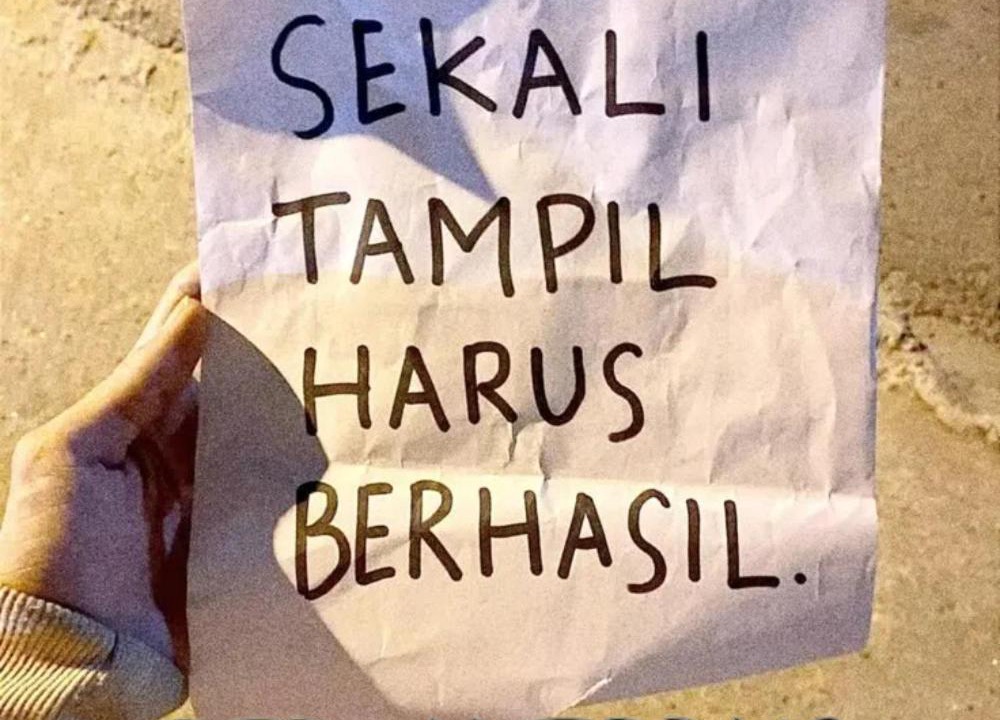 SEKALI
TAMPIL
HARUS
BERHASIL.